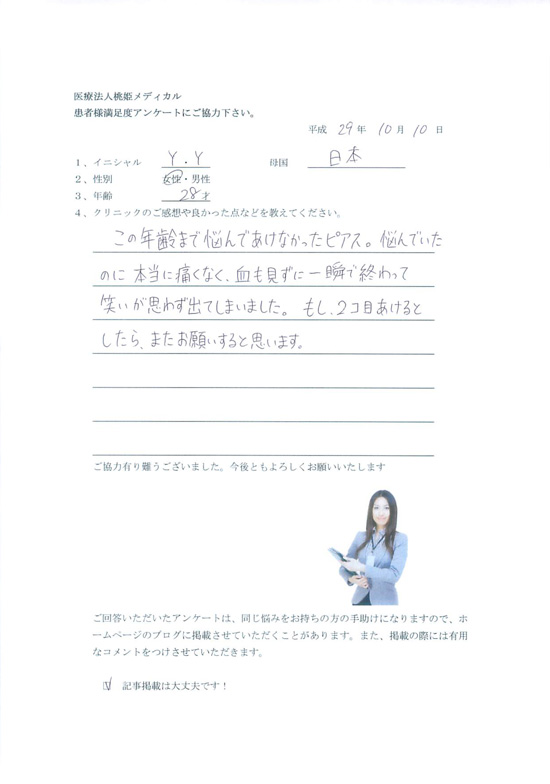 医療法人桃姫メディカル
患者様満足度アンケートにご協力下さい。
平成 29年 10月 10日
1、イニシャル Y.Y 母国 日本
2、性別 女性・男性
3、年齢 28才
4、クリニックのご感想や良かった点などを教えてください。
この年齢まで悩んであけなかったピアス。悩んでいた
のに本当に痛くなく、血も見ずに一瞬で終わって
笑いが思わず出てしまいました。もし、2コ目あけると
したら、またお願いすると思います。
ご協力有り難うございました。今後ともよろしくお願いいたします
ご回答いただいたアンケートは、同じ悩みをお持ちの方の手助けになりますので、ホ
ームページのブログに掲載させていただくことがあります。また、掲載の際には有用
なコメントをつけさせていただきます。
☑ 記事掲載は大丈夫です！